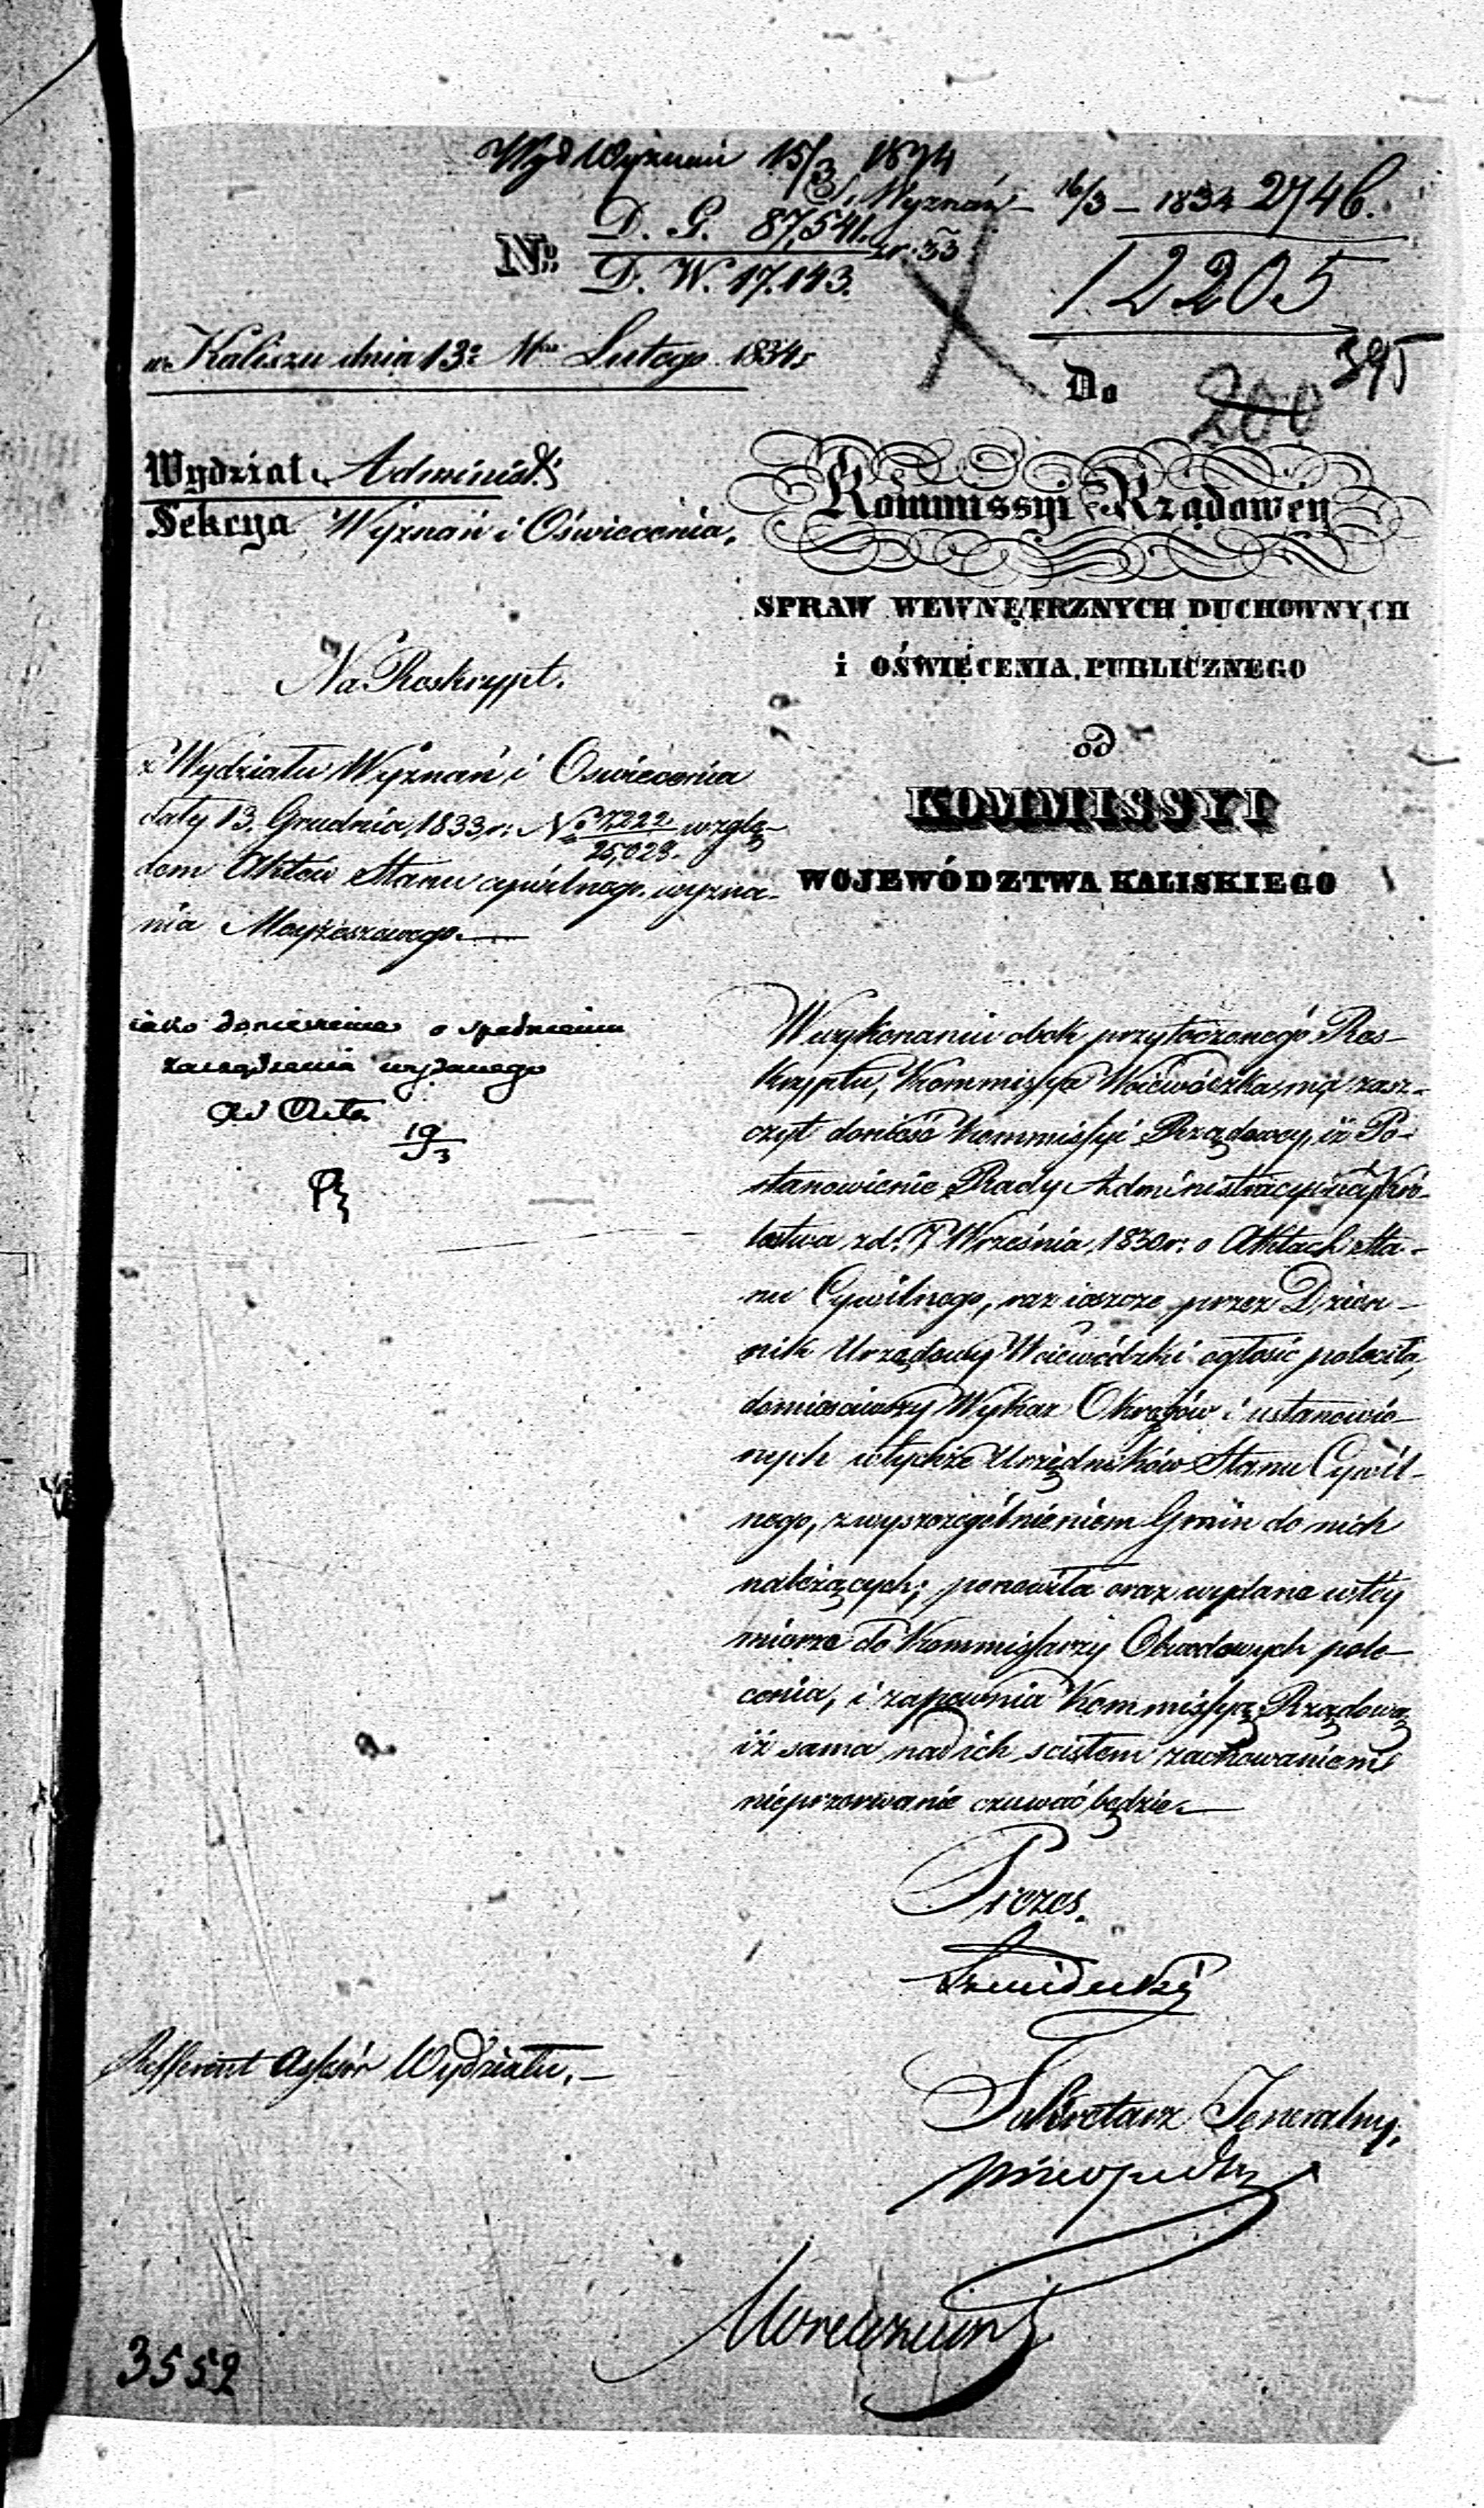 Wyd Wyznań 15/3 1834
S. Wyznań 16/3 – 1834 2746.
No D. G. 87,541. zr. 33
D. W. 17.143.
12205
w Kaliszu dnia 13o Mca Lutego 1834r
395
Do 200
Wydział Administ:
Sekcya Wyznań i Oświecenia.
Kommissyi Rządowéy
SPRAW WEWNĘTRZNYCH DUCHOWNYCH
i OŚWIĘCENIA PUBLICZNEGO
od
KOMMISSYI
WOJEWÓDZTWA KALISKIEGO
Na Reskrypt.
z Wydziału Wyznań i Oswiecenia
daty 13. Grudnia 1833r: No 7,222/25,023. wzglę-
dem Aktów Stanu cywilnego wyzna-
nia Moyżeszowego.
iako doniesienie o spełnieniu
zarządzenia wydanego
ad Acta
19/3
W wykonaniu obok przytoczonego Res-
kryptu, Kommissya Woiewódzka, ma zasz-
czyt donieść Kommissyi Rządowey, iż Po-
stanowienie Rady Administracyiney Kró-
lestwa z d: 7 Września 1830r: o Aktach Sta-
nu Cywilnego, raz ieszcze przez Dzien-
nik Urzędowy Woiewódzki ogłosić poleciła,
domieściwszy Wykaz Okręgów i ustanowio-
nych w tychże Urzędników Stanu Cywil-
nego, z wyszczególnieniem Gmin do nich
należących; ponowiła oraz wydane w tey
mierze do Kommissarzy Obwodowych pole-
cenia, i zapewnia Kommissyą Rządową
iż sama nad ich scisłem zachowaniem
nieprzerwanie czuwać będzie.
Prezes.
Szmidecki
Refferent Assesór Wydziału.
Sekretarz Jeneralny,
3552